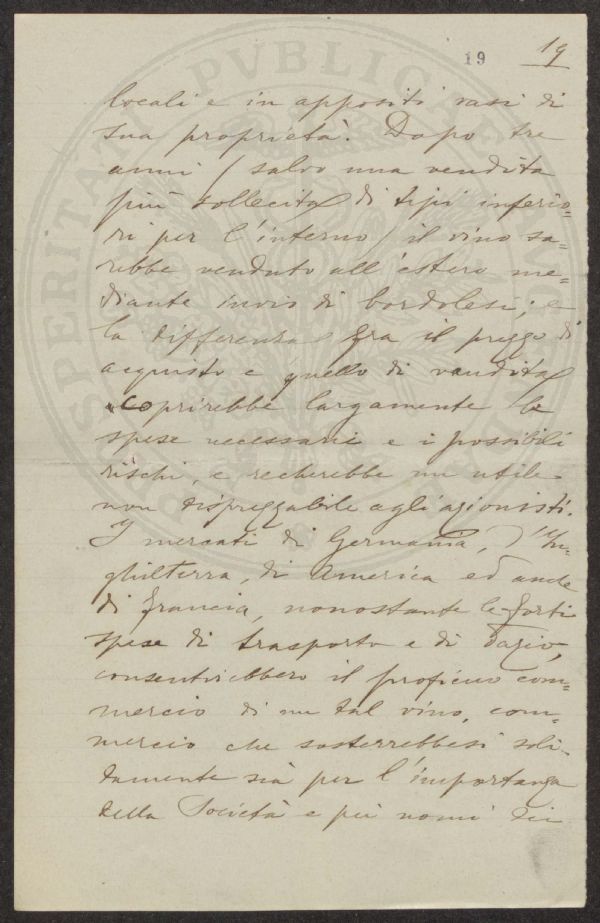 19 19
locali e in appositi vasi di
sua proprietà. Dopo tre
anni (salvo una vendita
più sollecita di tipi inferio=
ri per l'interno) il vino sa=
rebbe venduto all'estero me=
diante invio di bordolesi; e
la differenza fra il prezzo di
acquisto e quello di vendita
coprirebbe largamente le
spese necessarie e i possibili
rischi, e recherebbe un utile
non disprezzabile agli azionisti.
I mercati di Germania, d'In=
ghilterra, di America ed anche
di Francia, nonostante le forti
spese di trasporto e di dazio,
consentirebbero il proficuo com=
mercio di un tal vino, com=
mercio che sosterrebbesi soli=
damente sia per l'importanza
della Società e pei nomi dei
PROSPERITATI PVBLICAE